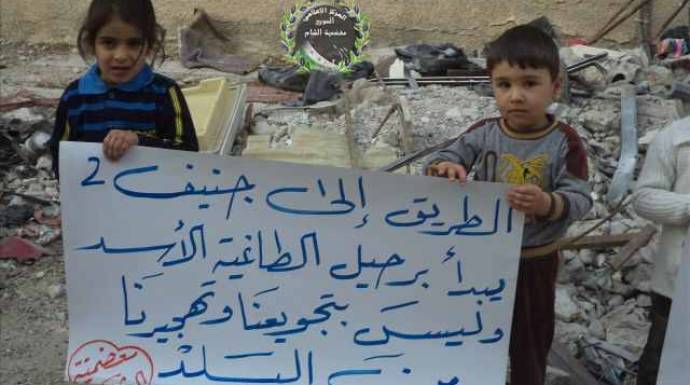 المركز الإعلامي
السوري
معضمية الشام
الطريق إلى جنيف 2
يبدأ برحيل الطاغية الأسد
وليسَ بتجويعنَا وتهجيرنَا
البلدْ
معضمية